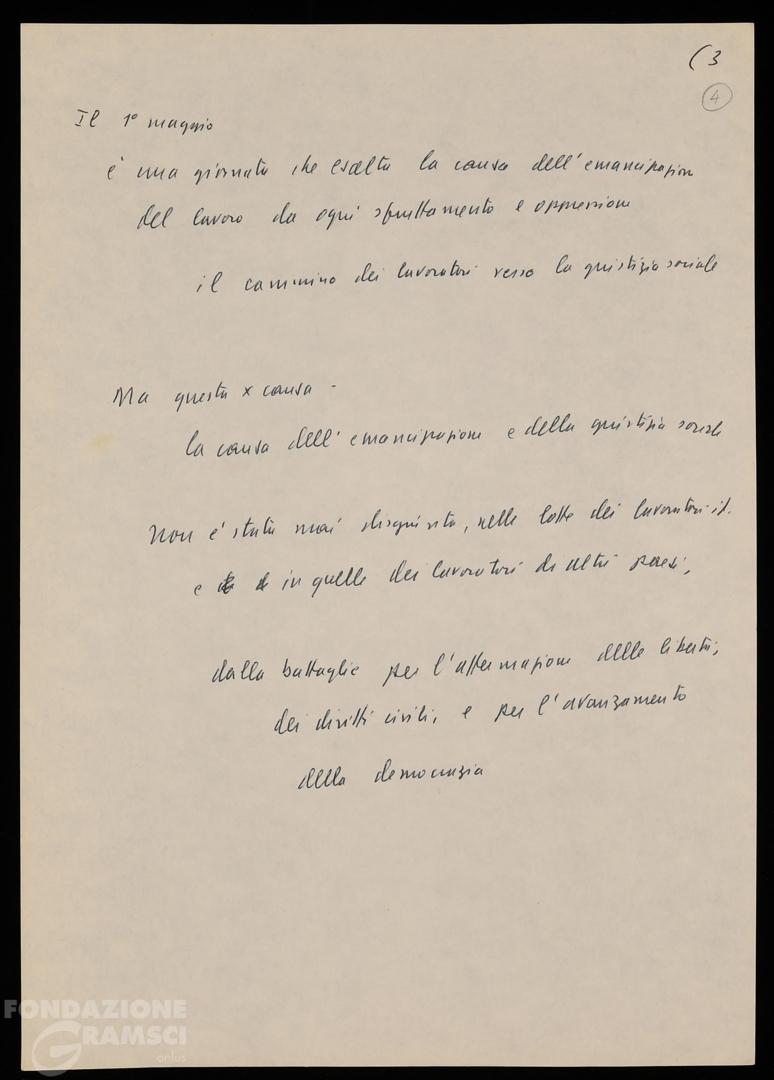 (3
4
Il 1° maggio
è una giornata che esalta la causa dell'emancipazione
del lavoro da ogni sfruttamento e oppressione
il cammino dei lavoratori verso la giustizia sociale
Ma questa x causa -
la causa dell'emancipazione e della giustizia sociale
Non è stata mai disgiunta, nelle lotte dei lavoratori it.
e in quelle dei lavoratori di altri paesi,
dalla battaglia per l'affermazione delle libertà,
dei diritti civili, e per l'avanzamento
della democrazia
FONDAZIONE
GRAMSCI
onlus